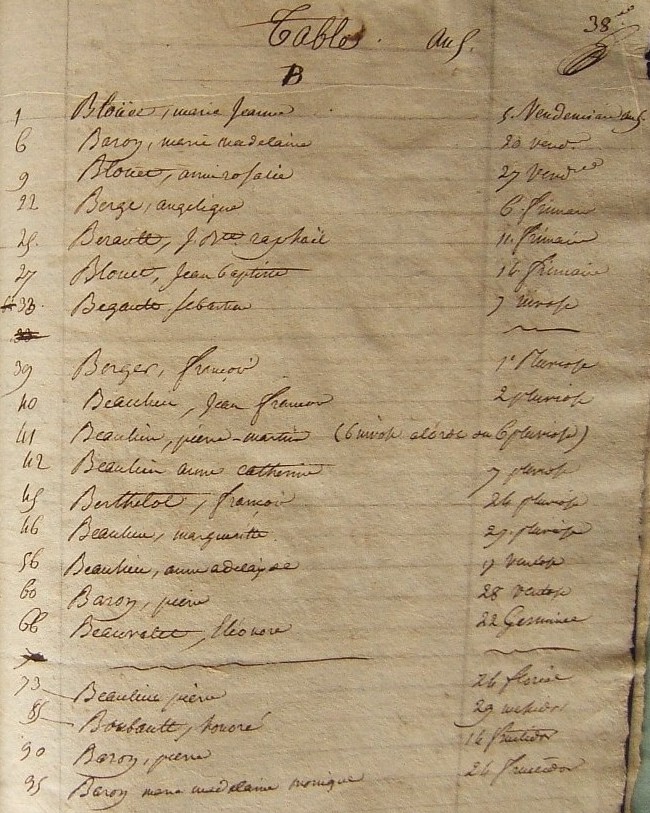 Table. an 5. 38
B
1 Bloüet, marie Jeanne 5. Vendemiaire an 5.
6 Baron, marie madelaine 20 vend.
9 Blouet, anne rosalie 27 Vend
22 Berge, angelique 6. frimaire
25. Berault, J. Bte. raphaël 11. frimaire
27 Blouet, Jean baptiste 16 frimaire
33. Begault, sebastien 7 nivose
39 Berger, françois 1er Pluviose
40 Beaulieu, Jean françois 2 pluviose
41 Beaulieu, pierre-martin (6 nivose ou 6 pluviose)
42 Beaulieu anne catherine 7 pluviose
45 Berthelot, françois 26 pluviose
46 Beaulieu, marguerite. 29 pluviose
56 Beaulieu, anne adelayde ventose
60 Baron, pierre 28 ventose
66 Beauvalet, Eléonore 22 Germinal
73 Beaulieu pierre 26 floréal
85 Boubault, honoré 29 messidor
90 Baron, pierre 14 fructidor
95 Baron marie madelaine monique 24 fructidor